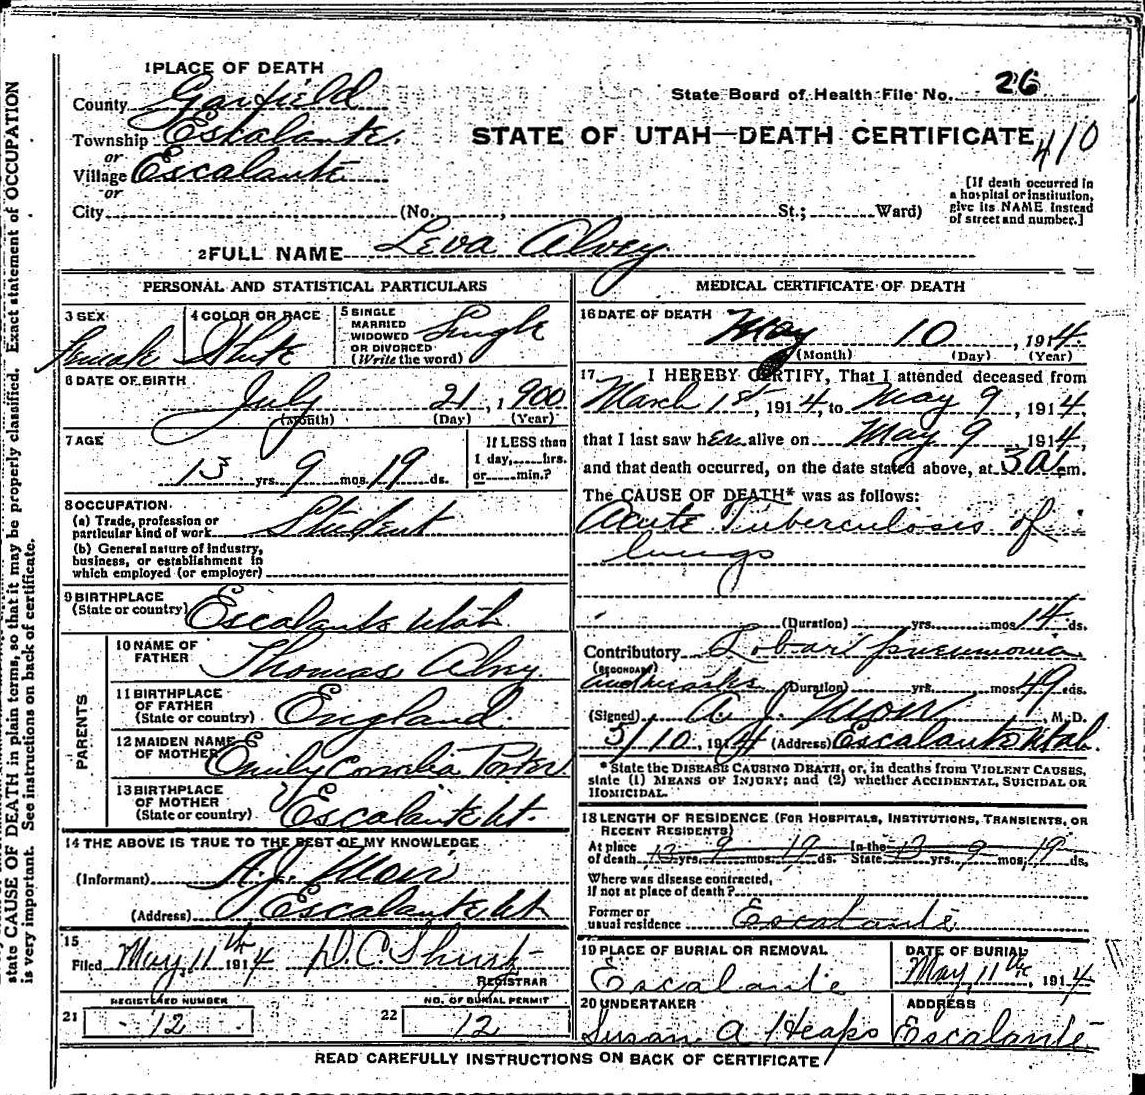 1 PLACE OF DEATH
County Garfield
State Board of Health File No. 26
Township Escalante.
STATE OF UTAH—DEATH CERTIFICATE 410
or
Village Escalante
or
City (No. , St.; Ward)
[If death occurred in
a hospital or institution,
give its NAME instead
of street and number.]
2 FULL NAME Leva Alvey
PERSONAL AND STATISTICAL PARTICULARS
3 SEX
Female
4 COLOR OR RACE
White
5 SINGLE
MARRIED
WIDOWED
OR DIVORCED
(Write the word)
Single
6 DATE OF BIRTH
July 21, 1900
(Month) (Day) (Year)
7 AGE
13 yrs. 9 mos. 19 ds.
If LESS than
1 day, hrs.
or min.?
8 OCCUPATION
(a) Trade, profession or
particular kind of work Student
(b) General nature of industry,
business, or establishment in
which employed (or employer)
9 BIRTHPLACE
(State or country) Escalante Utah
PARENTS
10 NAME OF
FATHER Thomas Alvey
11 BIRTHPLACE
OF FATHER
(State or country) England.
12 MAIDEN NAME
OF MOTHER Emily Cornelia Porter
13 BIRTHPLACE
OF MOTHER
(State or country) Escalante Ut.
14 THE ABOVE IS TRUE TO THE BEST OF MY KNOWLEDGE
(Informant) A. J. Moir
(Address) Escalante Ut
15
Filed May 11th 1914 D. C. Shurtz
REGISTRAR
REGISTERED NUMBER
21 12
NO. OF BURIAL PERMIT
22 12
MEDICAL CERTIFICATE OF DEATH
16 DATE OF DEATH
May 10, 1914.
(Month) (Day) (Year)
17 I HEREBY CERTIFY, That I attended deceased from
March 1st, 1914, to May 9, 1914,
that I last saw her alive on May 9, 1914,
and that death occurred, on the date stated above, at 3 A m.
The CAUSE OF DEATH* was as follows:
Acute Tuberculosis of
lungs
(Duration) yrs. mos. 14 ds.
Contributory Lobar pneumonia
(SECONDARY)
and measles (Duration) yrs. mos. 49 ds.
(Signed) A. J. Moir, M. D.
5/10, 1914 (Address) Escalante Utah.
* State the DISEASE CAUSING DEATH, or, in deaths from VIOLENT CAUSES,
state (1) MEANS OF INJURY; and (2) whether ACCIDENTAL, SUICIDAL OR
HOMICIDAL.
18 LENGTH OF RESIDENCE (FOR HOSPITALS, INSTITUTIONS, TRANSIENTS, OR
RECENT RESIDENTS)
At place
of death 13 yrs. 9 mos. 19 ds. In the
State 13 yrs. 9 mos. 19 ds.
Where was disease contracted,
if not at place of death?
Former or
usual residence Escalante
19 PLACE OF BURIAL OR REMOVAL
Escalante
DATE OF BURIAL
May 11th, 1914
20 UNDERTAKER
Susan A Heaps
ADDRESS
Escalante
READ CAREFULLY INSTRUCTIONS ON BACK OF CERTIFICATE
state CAUSE OF DEATH in plain terms, so that it may be properly classified. Exact statement of OCCUPATION
is very important. See instructions on back of certificate.